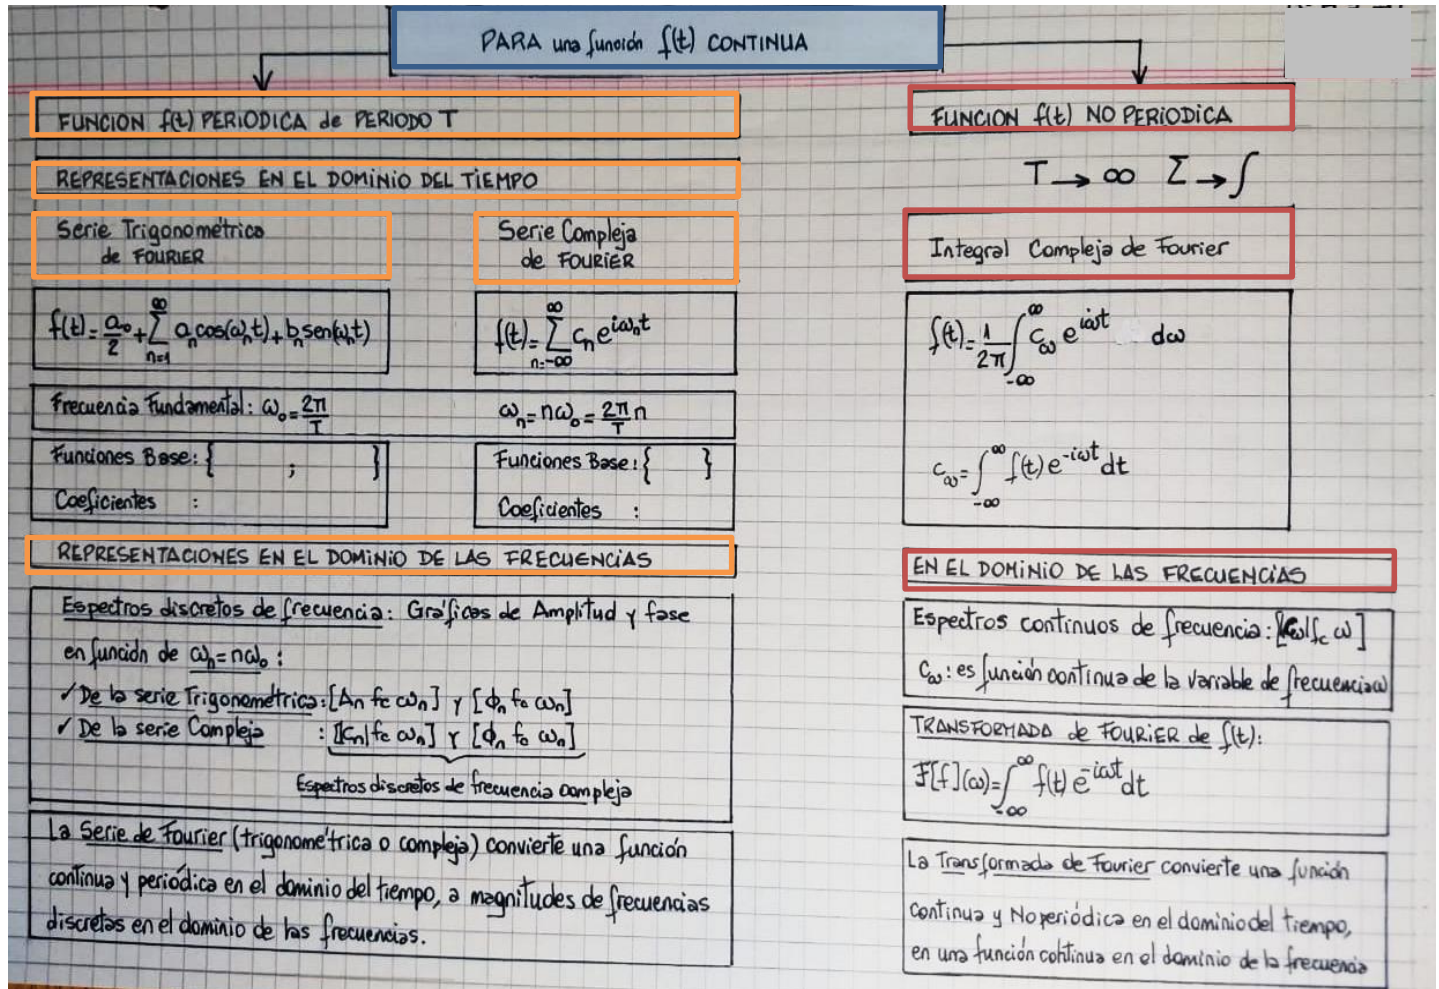 PARA una función f(t) CONTINUA
FUNCION f(t) PERIODICA de PERIODO T
REPRESENTACIONES EN EL DOMINIO DEL TIEMPO
Serie Trigonométrica
de FOURIER
f(t)=a₀/2+∑_{n=1}^{∞} aₙcos(ωₙt)+bₙsen(ωₙt)
Serie Compleja
de FOURIER
f(t)=∑_{n=-∞}^{∞} cₙe^{iωₙt}
Frecuencia Fundamental: ω₀=2π/T ωₙ=nω₀=2π/T n
Funciones Base: { ; }
Coeficientes :
Funciones Base: { }
Coeficientes :
REPRESENTACIONES EN EL DOMINIO DE LAS FRECUENCIAS
Espectros discretos de frecuencia: Gráficas de Amplitud y fase
en función de ωₙ=nω₀:
✓ De la serie Trigonométrica: [Aₙ fc ωₙ] y [ϕₙ fc ωₙ]
✓ De la serie Compleja : [|cₙ| fc ωₙ] y [ϕₙ fc ωₙ]
Espectros discretos de frecuencia compleja
La Serie de Fourier (trigonométrica o compleja) convierte una función
continua y periódica en el dominio del tiempo, a magnitudes de frecuencias
discretas en el dominio de las frecuencias.
FUNCION f(t) NO PERIODICA
T→∞ Σ→∫
Integral Compleja de Fourier
f(t)=1/2π ∫_{-∞}^{∞} c_ω e^{iωt} dω
c_ω=∫_{-∞}^{∞} f(t) e^{-iωt} dt
EN EL DOMINIO DE LAS FRECUENCIAS
Espectros continuos de frecuencia: [|c_ω| fc ω]
c_ω: es función continua de la variable de frecuencia ω
TRANSFORMADA de FOURIER de f(t):
F[f](ω)=∫_{-∞}^{∞} f(t) e^{-iωt} dt
La Transformada de Fourier convierte una función
continua y No periódica en el dominio del tiempo,
en una función continua en el dominio de la frecuencia